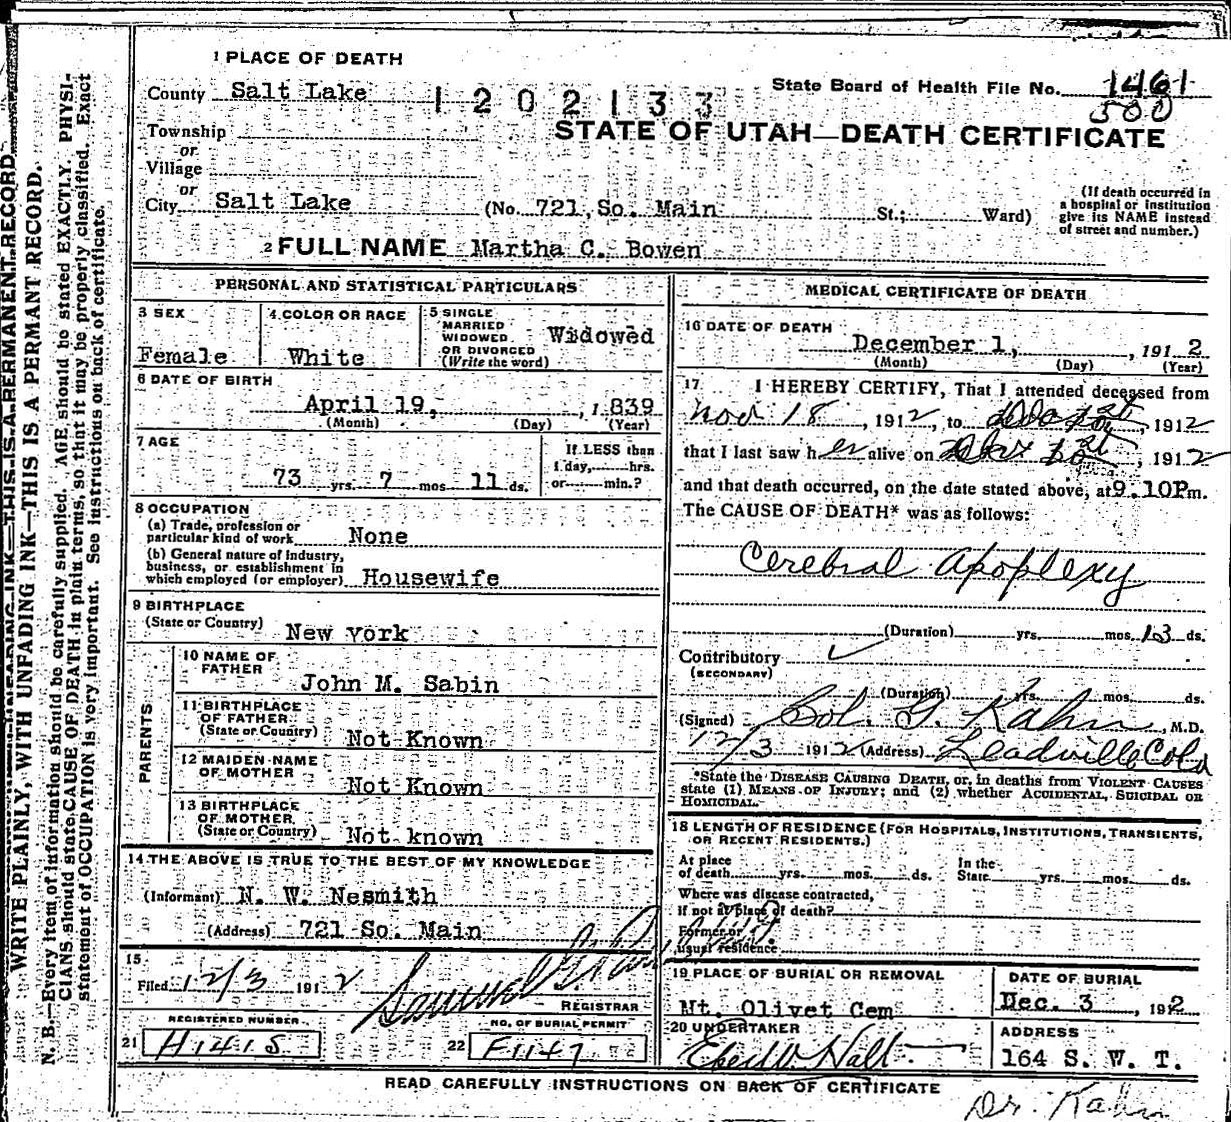 1 PLACE OF DEATH
County Salt Lake
1202133
State Board of Health File No. 1461
500
STATE OF UTAH—DEATH CERTIFICATE
Township
or
Village
or
City Salt Lake (No. 721 So. Main St.; Ward)
(If death occurred in
a hospital or institution
give its NAME instead
of street and number.)
2 FULL NAME Martha C. Bowen
PERSONAL AND STATISTICAL PARTICULARS
3 SEX
Female
4 COLOR OR RACE
White
5 SINGLE
MARRIED
WIDOWED
OR DIVORCED
(Write the word)
Widowed
6 DATE OF BIRTH
April 19, , 1839
(Month) (Day) (Year)
7 AGE
73 yrs. 7 mos 11 ds.
If LESS than
1 day, hrs.
or min.?
8 OCCUPATION
(a) Trade, profession or
particular kind of work None
(b) General nature of industry,
business, or establishment in
which employed (or employer) Housewife
9 BIRTHPLACE
(State or Country) New York
PARENTS
10 NAME OF
FATHER
John M. Sabin
11 BIRTHPLACE
OF FATHER
(State or Country) Not Known
12 MAIDEN NAME
OF MOTHER
Not Known
13 BIRTHPLACE
OF MOTHER
(State or Country) Not known
14 THE ABOVE IS TRUE TO THE BEST OF MY KNOWLEDGE
(Informant) N. W. Nesmith
(Address) 721 So. Main
15
Filed 12/3 1912
Samuel G.
REGISTRAR
REGISTERED NUMBER
21 H1415
NO. OF BURIAL PERMIT
22 F1147
MEDICAL CERTIFICATE OF DEATH
16 DATE OF DEATH
December 1, , 1912
(Month) (Day) (Year)
17 I HEREBY CERTIFY, That I attended deceased from
Nov 18 , 1912, to , 1912
that I last saw her alive on , 1912
and that death occurred, on the date stated above, at 9.10P m.
The CAUSE OF DEATH* was as follows:
Cerebral Apoplexy
(Duration) yrs. mos. 13 ds.
Contributory
(SECONDARY)
(Duration) yrs. mos. ds.
(Signed) Sol. G. Kahn, M.D.
12/3 1912 (Address) Leadville Colo
*State the DISEASE CAUSING DEATH, or, in deaths from VIOLENT CAUSES
state (1) MEANS OF INJURY; and (2) whether ACCIDENTAL, SUICIDAL OR
HOMICIDAL.
18 LENGTH OF RESIDENCE (FOR HOSPITALS, INSTITUTIONS, TRANSIENTS,
OR RECENT RESIDENTS.)
At place
of death yrs. mos. ds.
In the
State yrs. mos. ds.
Where was disease contracted,
if not at place of death?
Former or
usual residence
19 PLACE OF BURIAL OR REMOVAL
Mt. Olivet Cem
DATE OF BURIAL
Dec. 3 , 1912
20 UNDERTAKER
Eber W. Hall
ADDRESS
164 S. W. T.
READ CAREFULLY INSTRUCTIONS ON BACK OF CERTIFICATE
Dr. Kahn
WRITE PLAINLY, WITH UNFADING INK—THIS IS A PERMANT RECORD.
N. B.—Every item of information should be carefully supplied. AGE should be stated EXACTLY. PHYSI-
CIANS should state CAUSE OF DEATH in plain terms, so that it may be properly classified. Exact
statement of OCCUPATION is very important. See instructions on back of certificate.